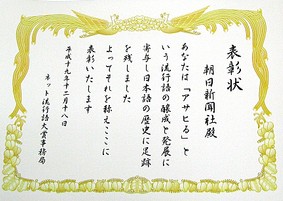 表彰状
朝日新聞社殿
あなたは「アサヒる」と
いう流行語の醸成と発展に
寄与し日本語の歴史に足跡
を残しました
よってそれを称えここに
表彰いたします
平成十九年十二月十八日
ネット流行語大賞事務局